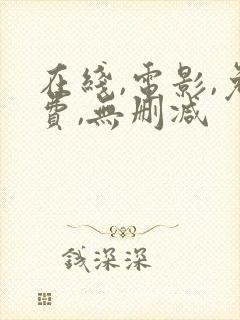 在綫,電影,免
費,無刪減
錢深深